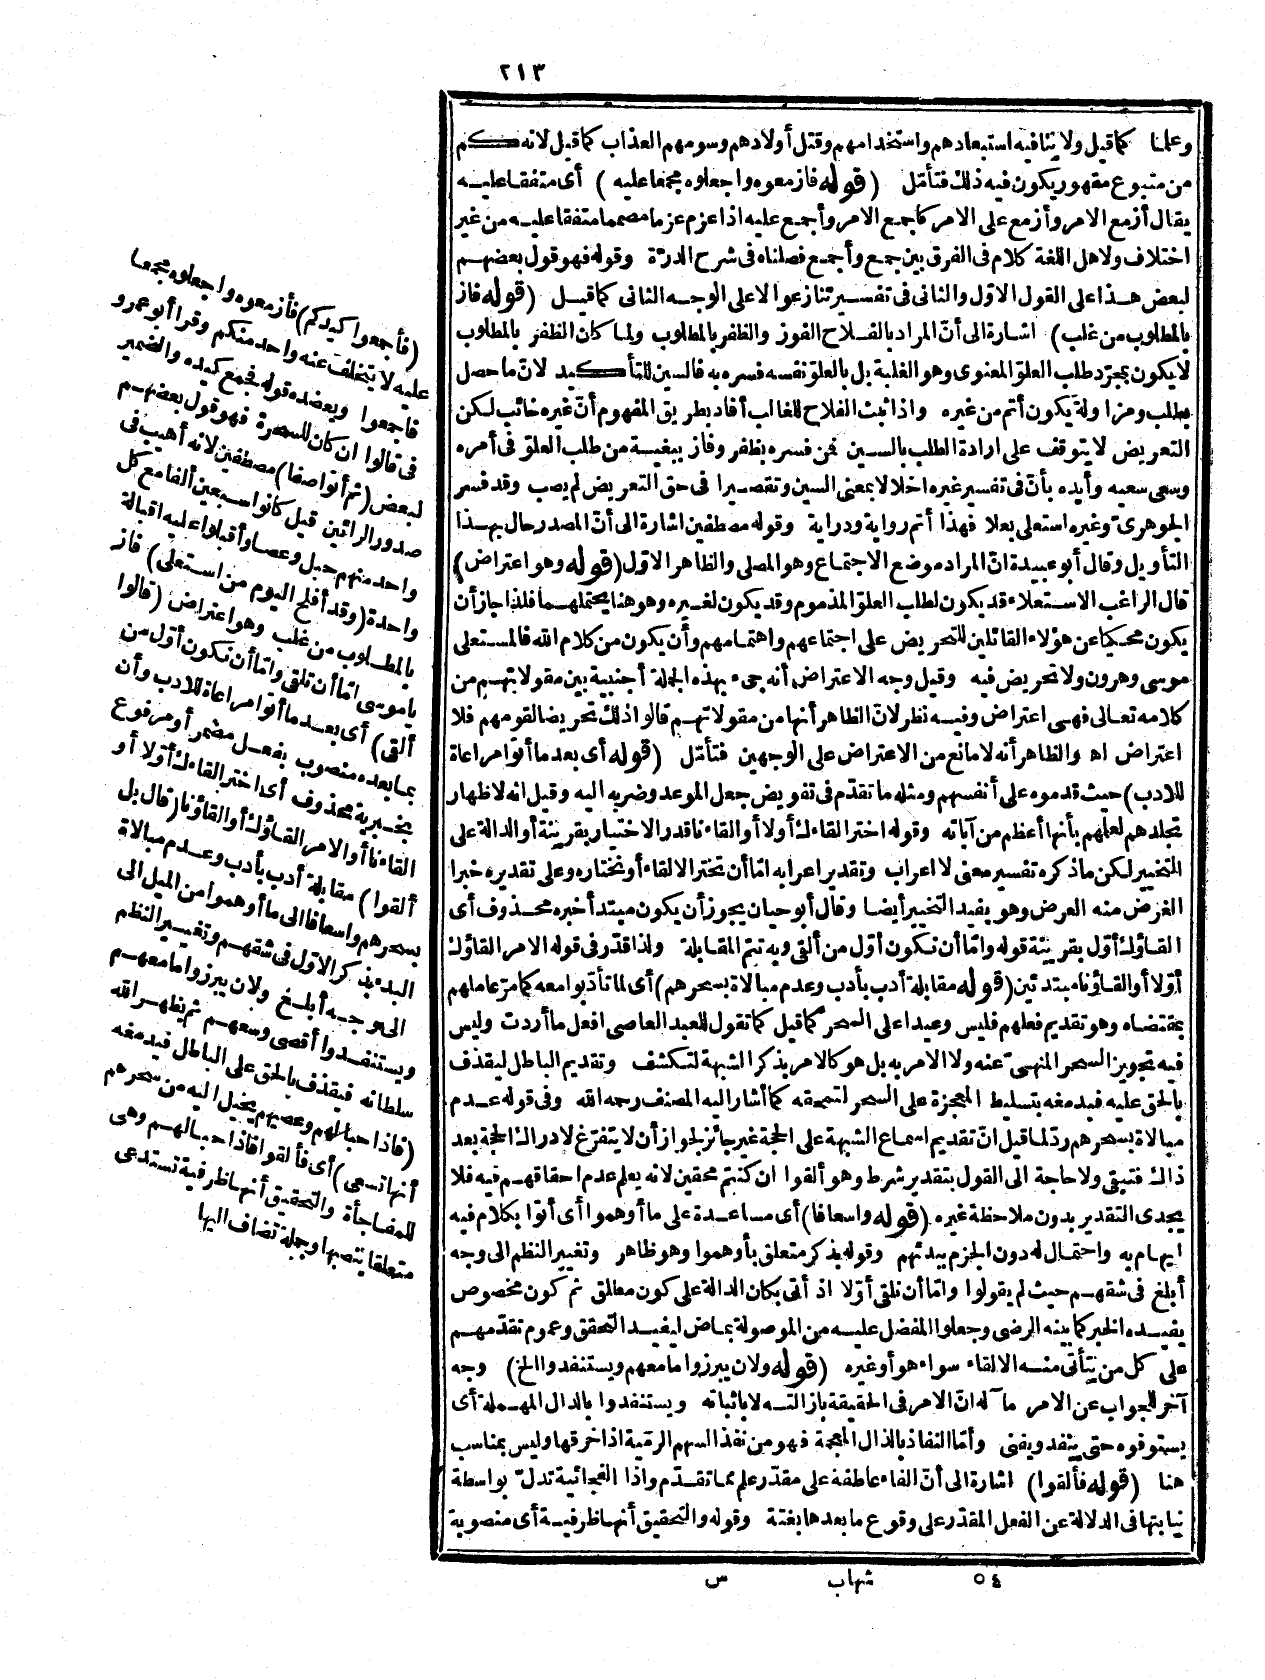 ٢١٣
وعلنا كما قيل ولا ينافيه استبعادهم واستخدامهم وقتل أولادهم وسومهم العذاب كما قيل لانه حكم
من متبوع مقهور يكون فيه ذلك فتأمّل (قوله فازمعوه واجعلوه مجمعا عليه) أى متفقا عليه
يقال أزمع الامر وأزمع على الامر كاجمع الامر وأجمع عليه اذا عزم عزما مصمما متفقا عليه من غير
اختلاف ولاهل اللغة كلام فى الفرق بين جمع وأجمع فصلناه فى شرح الدرّة وقوله فهو قول بعضهم
لبعض هذا على القول الاوّل والثانى فى تفسير تنازعوا لا على الوجه الثانى كما قيل (قوله فاز
بالمطلوب من غلب) اشارة الى أنّ المراد بالفلاح الفوز والظفر بالمطلوب ولما كان الظفر بالمطلوب
لا يكون بمجرّد طلب العلوّ المعنوى وهو الغلبة بل بالعلوّ نفسه فسره به فالسين للتأكيد لانّ ما حصل
بطلب ومزاولة يكون أتم من غيره واذا ثبت الفلاح للغالب أفاد بطريق المفهوم أنّ غيره خائب لكن
التعريض لا يتوقف على ارادة الطلب بالسين فمن فسره بظفر وفاز ببغية من طلب العلوّ فى أمره
وسعى سعيه وأيده بأنّ فى تفسير غيره اخلالا بمعنى السين وتقصيرا فى حق التعريض لم يصب وقد فسر
الجوهرىّ وغيره استعلى بعلا فهذا أتم رواية ودراية وقوله مصطفين اشارة الى أنّ المصدر حال بهذا
التأويل وقال أبو عبيدة انّ المراد موضع الاجتماع وهو المصلى والظاهر الاوّل (قوله وهو اعتراض)
قال الراغب الاستعلاء قد يكون لطلب العلوّ المذموم وقد يكون لغيره وهو هنا يحتملهما فلذا جاز أن
يكون محكيا عن هؤلاء القائلين للتحريض على اجتماعهم واهتمامهم وأن يكون من كلام الله فالمستعلى
موسى وهرون ولا تحريض فيه وقيل وجه الاعتراض أنه جىء بهذه الجملة أجنبية بين مقولاتهم من
كلامه تعالى فهى اعتراض وفيه نظر لانّ الظاهر أنها من مقولاتهم قالوا ذلك تحريضا لقومهم فلا
اعتراض اه والظاهر أنه لا مانع من الاعتراض على الوجهين فتأمّل (قوله أى بعد ما أتوا مراعاة
للادب) حيث قدموه على أنفسهم ومثله ما تقدّم فى تفويض جعل الموعد وضربه اليه وقيل انه لاظهار
تجلدهم لعلهم بأنها أعظم من آياته وقوله اختر القاءك أولا أو القاءنا قدر الاختيار بقرينة أو الدالة على
التخيير لكن ما ذكره تفسير معنى لا اعراب وتقدير اعرابه امّا أن تختر الالقاء أو نختاره وعلى تقديره خبرا
الغرض منه العرض وهو يفيد التخيير أيضا وقال أبو حيان يجوز أن يكون مبتدأ خبره محذوف أى
القاؤك أوّل بقرينة قوله وامّا أن نكون أوّل من ألقى وبه تتم المقابلة ولذا قدّر فى قوله الامر القاؤك
أوّلا أو القاؤنا مبتدئين (قوله مقابلة أدب بأدب وعدم مبالاة بسحرهم) أى لما تأدّبوا معه كما مرّ عاملهم
بمقتضاه وهو تقديم فعلهم فليس وعيدا على السحر كما قيل كما تقول للعبد العاصى افعل ما أردت وليس
فيه تجويز السحر المنهىّ عنه ولا الامر به بل هو كالامر بذكر الشبهة لتكشف وتقديم الباطل ليقذف
بالحق عليه فيدمغه بتسليط المعجزة على السحر لتمحقه كما أشار اليه المصنف رحمه الله وفى قوله عدم
مبالاة بسحرهم ردّ لما قيل انّ تقديم اسماع الشبهة على الحجة غير جائز لجواز أن لا يتفرّغ لادراك الحجة بعد
ذلك فتبقى ولا حاجة الى القول بتقدير شرط وهو ألقوا ان كنتم محقين لانه يعلم عدم احقاقهم فيه فلا
يجدى التقدير بدون ملاحظة غيره (قوله واسعافا) أى مساعدة على ما أوهموا أى أتوا بكلام فيه
ايهام به واحتمال له دون الجزم ببدئهم وقوله بذكر متعلق بأوهموا وهو ظاهر وتغيير النظم الى وجه
أبلغ فى شقهم حيث لم يقولوا وامّا أن نلقى أوّلا اذ أتى بكان الدالة على كون مطلق ثم كون مخصوص
يفيده الخبر كما بينه الرضى وجعلوا المفضل عليه من الموصولة بماض ليفيد التحقق وعموم تقدّمهم
على كل من يتأتى منه الالقاء سواء هو أو غيره (قوله ولان يبرزوا ما معهم ويستنفدوا الخ) وجه
آخر للجواب عن الامر مآله انّ الامر فى الحقيقة بازالته لا باثباته ويستنفدوا بالدال المهملة أى
يستوفوه حتى ينفد ويفنى وأمّا النفاذ بالذال المعجمة فهو من نفذ السهم الرمية اذا خرقها وليس بمناسب
هنا (قوله فألقوا) اشارة الى أنّ الفاء عاطفة على مقدّر علم مما تقدّم واذا الفجائية تدلّ بواسطة
نيابتها فى الدلالة عن الفعل المقدّر على وقوع ما بعدها بغتة وقوله والتحقيق أنها ظرفية أى منصوبة
(فأجمعوا كيدكم) فأزمعوه واجعلوه مجمعا
عليه لا يتخلف عنه واحد منكم وقرا أبو عمرو
فاجمعوا ويعضده قوله فجمع كيده والضمير
فى قالوا ان كان للسحرة فهو قول بعضهم
لبعض (ثم أتوا صفا) مصطفين لانه أهيب فى
صدور الرائين قيل كانوا سبعين ألفا مع كل
واحد منهم حبل وعصا وأقبلوا عليه اقبالة
واحدة (وقد أفلح اليوم من استعلى) فاز
بالمطلوب من غلب وهو اعتراض (قالوا
يا موسى امّا أن تلقى وامّا أن نكون أوّل من
ألقى) أى بعد ما أتوا مراعاة للادب وأن
بما بعده منصوب بفعل مضمر أو مرفوع
بخبرية محذوف أى اختر القاءك أوّلا أو
القاءنا أو الامر القاؤك أو القاؤنا (قال بل
ألقوا) مقابلة أدب بأدب وعدم مبالاة
بسحرهم واسعافا الى ما أوهموا من الميل الى
البدء بذكر الاوّل فى شقهم وتغيير النظم
الى وجه أبلغ ولان يبرزوا ما معهم
ويستنفدوا أقصى وسعهم ثم يظهر الله
سلطانه فيقذف بالحق على الباطل فيدمغه
(فاذا حبالهم وعصيهم يخيل اليه من سحرهم
أنها تسعى) أى فألقوا فاذا حبالهم وهى
للمفاجأة والتحقيق أنها ظرفية تستدعى
متعلقا ينصبها وجملة تضاف اليها
٥٤ شهاب س